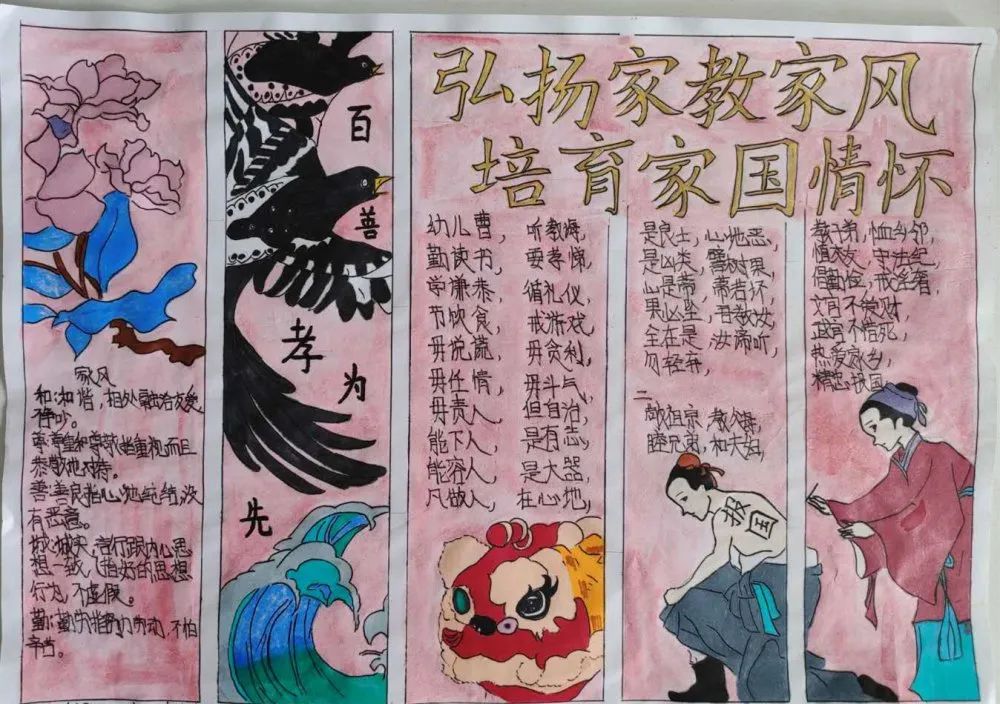 弘扬家教家风
培育家国情怀
家风
和:和谐,相处融洽友爱
不争吵。
尊:尊重和尊敬,指重视而且
恭敬地对待。
善:善良,指心地纯洁,没
有恶意。
诚:诚实,言行跟内心思
想一致(指好的思想
行为)不虚假。
勤:勤劳,指努力劳动,不怕
辛苦。
百
善
孝
为
先
幼儿曹,听教诲,
勤读书,要孝悌,
学谦恭,循礼仪,
节饮食,戒游戏,
毋说谎,毋贪利,
毋任情,毋斗气,
毋责人,但自治,
能下人,是有志,
能容人,是大器,
凡做人,在心地,
是良士,心地恶,
是凶类,譬树果,
心是蒂,蒂若坏,
果必坠,吾教汝,
全在是,汝谛听,
勿轻弃,
二、
敬祖宗,
睦兄弟,和夫妇,
教子弟,恤乡邻,
慎交友,守法纪,
倡勤俭,戒奢,
文官不爱财
武官不惜死,
热爱家乡,
精忠报国
报
国